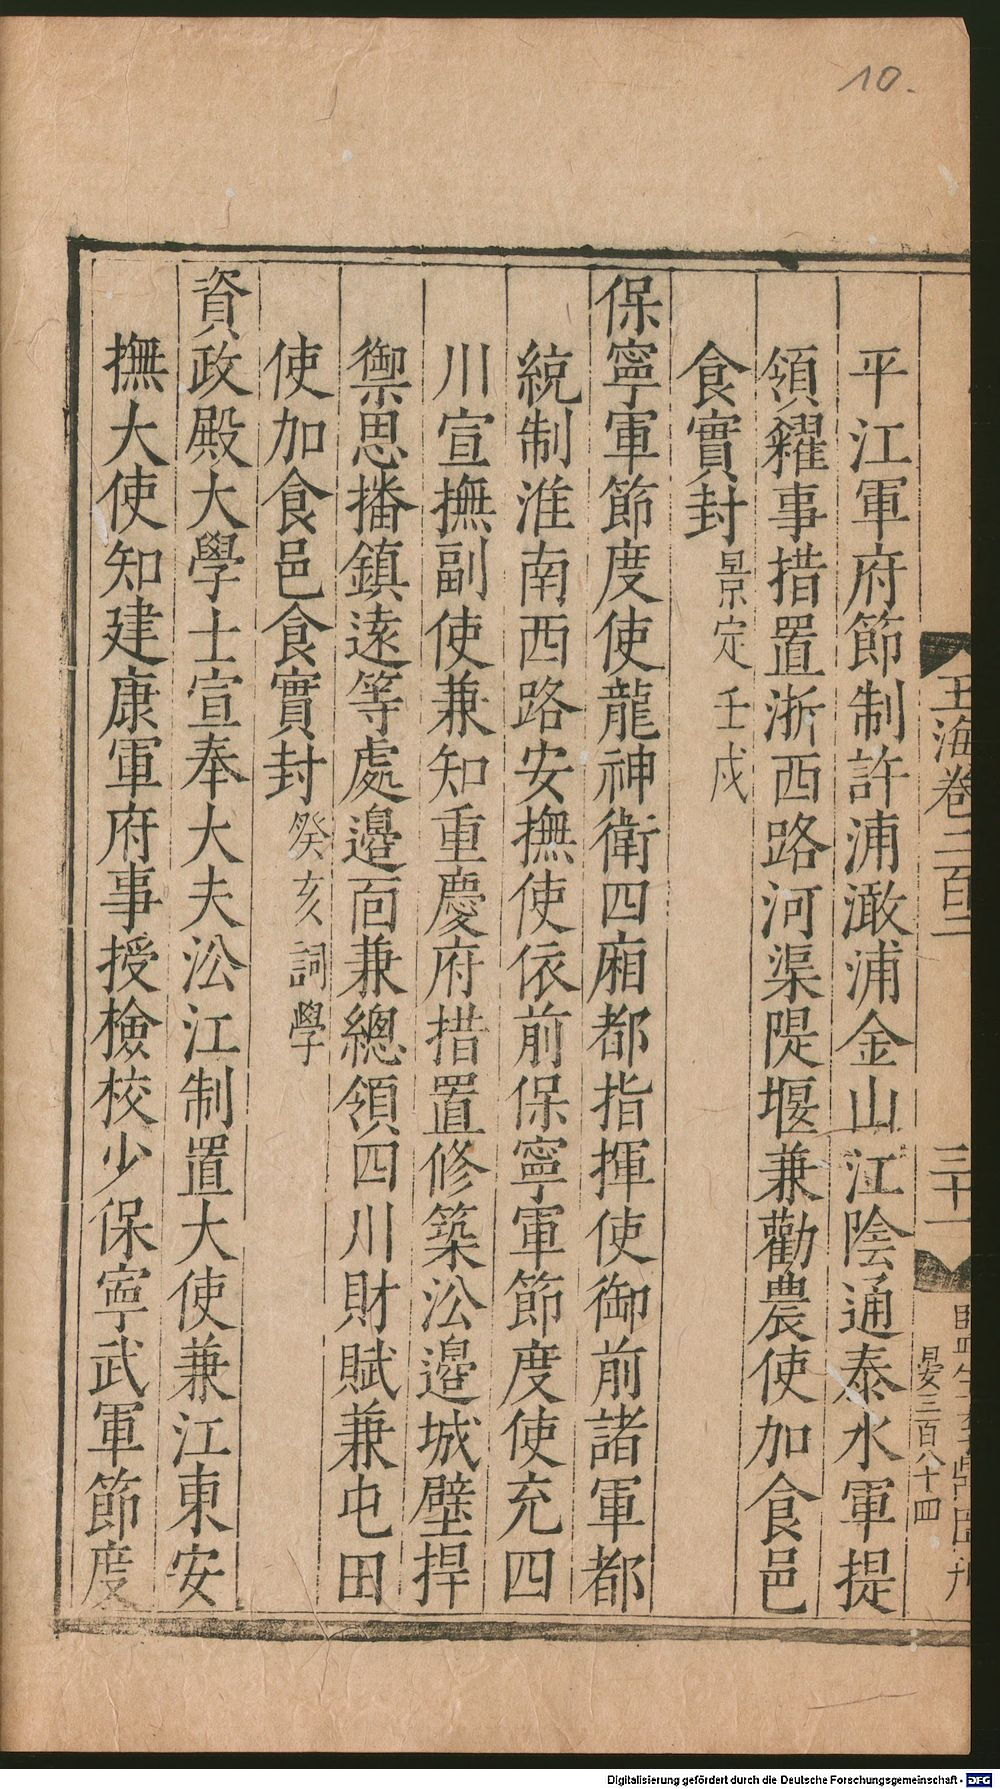 10.
玉海卷二百二
三十一
晏三百八十四
平江軍府節制許浦澉浦金山江陰通泰水軍提
領糴事措置浙西路河渠隄堰兼勸農使加食邑
食實封景定壬戌
保寧軍節度使龍神衛四廂都指揮使御前諸軍都
統制淮南西路安撫使依前保寧軍節度使充四
川宣撫副使兼知重慶府措置修築㳂邉城壁捍
禦思播鎮逺等處邉面兼緫領四川財賦兼屯田
使加食邑食實封癸亥詞學
資政殿大學士宣奉大夫㳂江制置大使兼江東安
撫大使知建康軍府事授檢校少保寧武軍節度
Digitalisierung gefördert durch die Deutsche Forschungsgemeinschaft - DFG